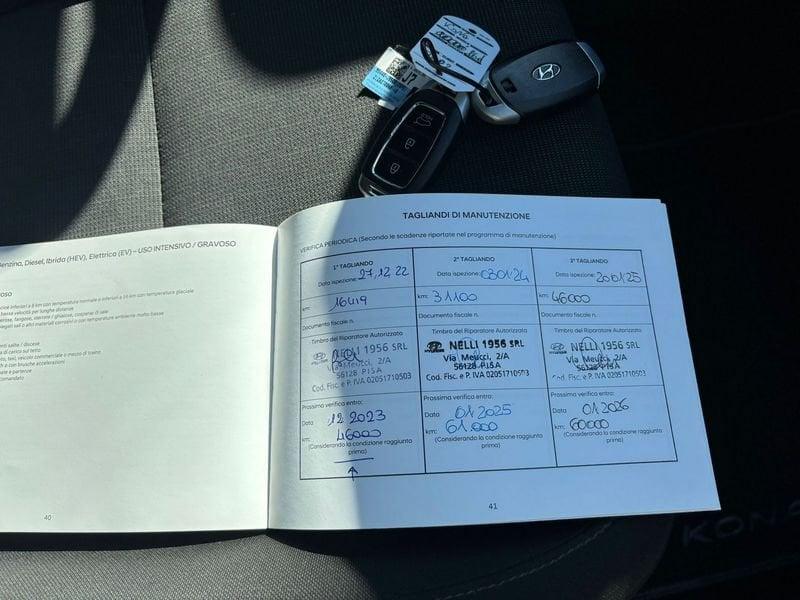 Benzina, Diesel, Ibrida (HEV), Elettrica (EV) – USO INTENSIVO / GRAVOSO
40
TAGLIANDI DI MANUTENZIONE
VERIFICA PERIODICA (Secondo le scadenze riportate nel programma di manutenzione)
1° TAGLIANDO
Data ispezione: 27,12,22
km: 16419
Documento fiscale n.
Timbro del Riparatore Autorizzato
NELLI 1956 SRL
Via Meucci, 2/A
56128 PISA
Cod. Fisc. e P. IVA 02051710503
Prossima verifica entro:
Data 12 2023
km: 46000
(Considerando la condizione raggiunta
prima)
2° TAGLIANDO
Data ispezione: 030124
km: 31100
Documento fiscale n.
Timbro del Riparatore Autorizzato
HYUNDAI NELLI 1956 SRL
Via Meucci, 2/A
56128 PISA
Cod. Fisc. e P. IVA 02051710503
Prossima verifica entro:
Data 01 2025
km: 61.000
(Considerando la condizione raggiunta
prima)
3° TAGLIANDO
Data ispezione: 200125
km: 46000
Documento fiscale n.
Timbro del Riparatore Autorizzato
NELLI 1956 SRL
Via Meucci, 2/A
56128 PISA
Cod. Fisc. e P. IVA 02051710503
Prossima verifica entro:
Data 01 2026
km: 60000
(Considerando la condizione raggiunta
prima)
41
KONA